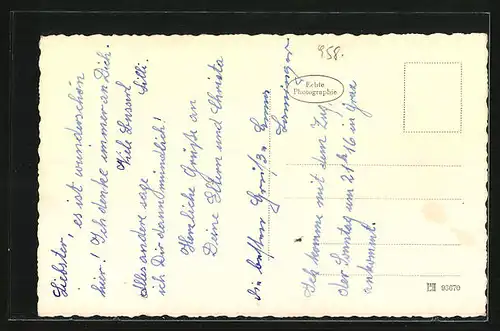 Liebster, es ist wunderschön
hier! Ich denke immer an Dich.
Viele
Lilli.
Alles andere sage
ich Dir dann mündlich!
Herzliche Grüße an
Deine Eltern und Christa
die besten Grüße
Ich komme mit dem Zug
der Sonntag um 21h 16 in Graz
ankommt.
958.
Echte
Photographie
93670